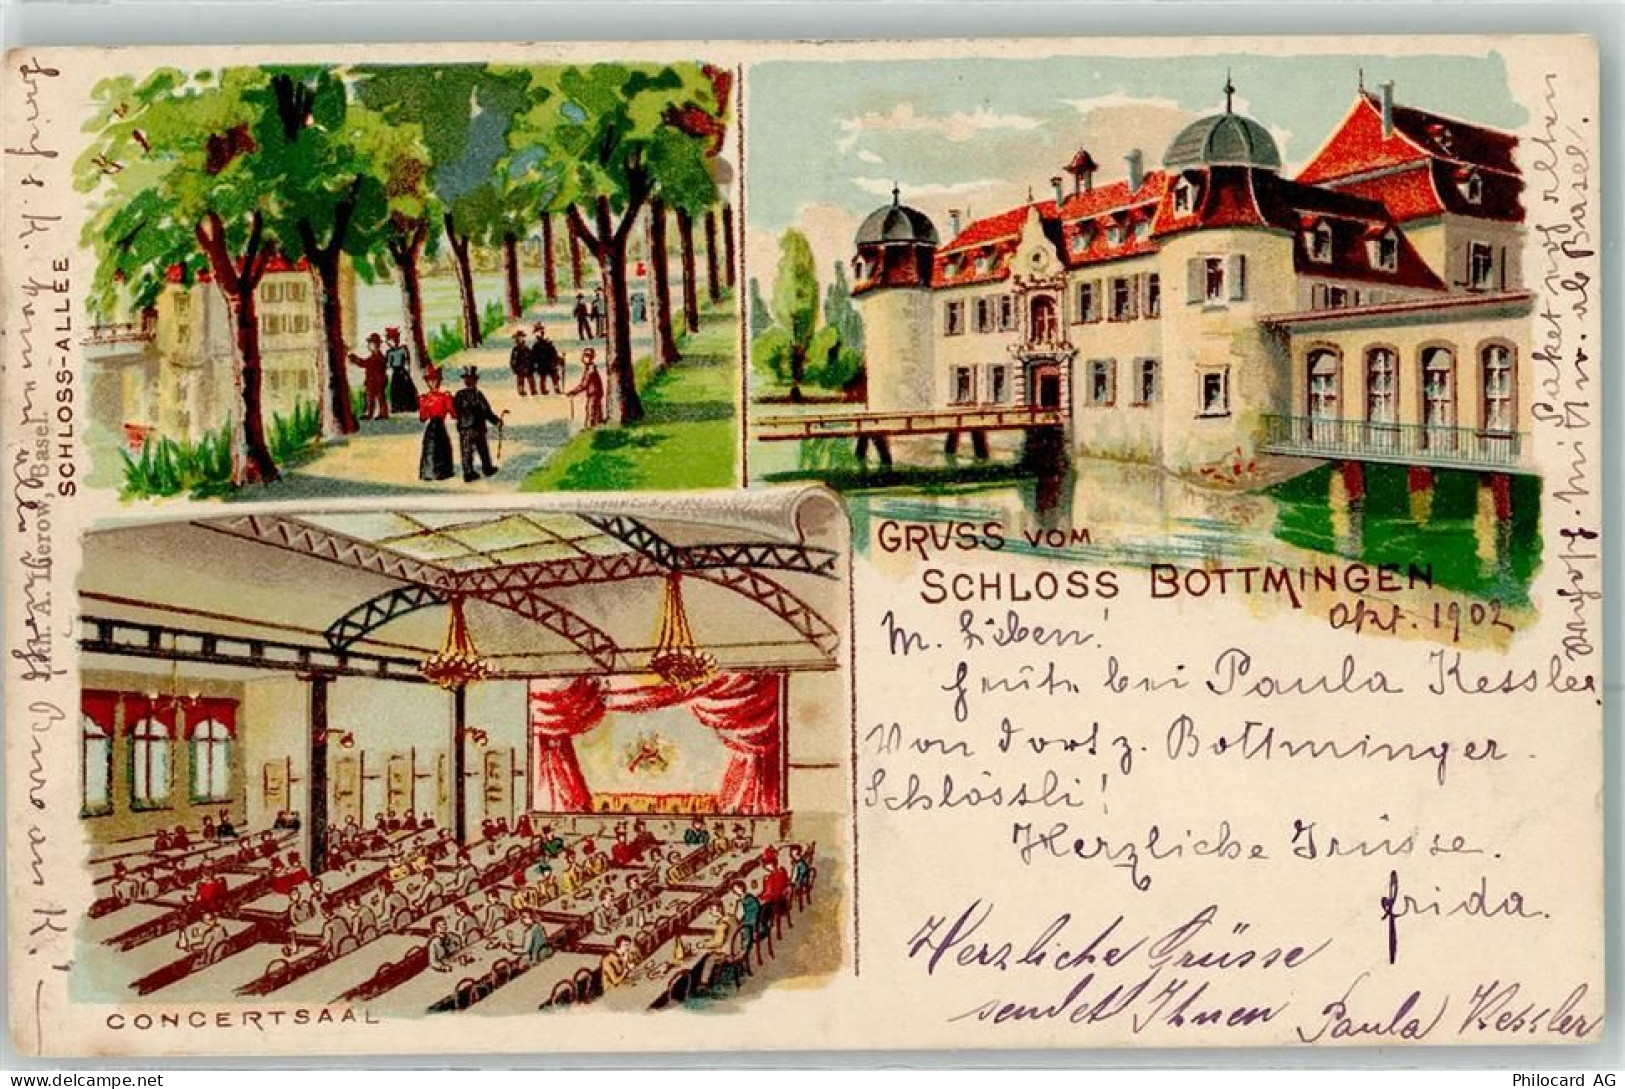 SCHLOSS-ALLÉE
Lith. A. Therow, Basel.
GRUSS VOM
SCHLOSS BOTTMINGEN
Okt. 1902
M. Lieben!
heute bei Paula Kessler.
Von dort z. Bottminger
Schlössli!
Herzliche Grüsse.
Frida.
Herzliche Grüsse
sendet Ihnen Paula Kessler
CONCERTSAAL
Paket noch erhalten
mitw. als Basel.
Philocard AG
delcampe.net